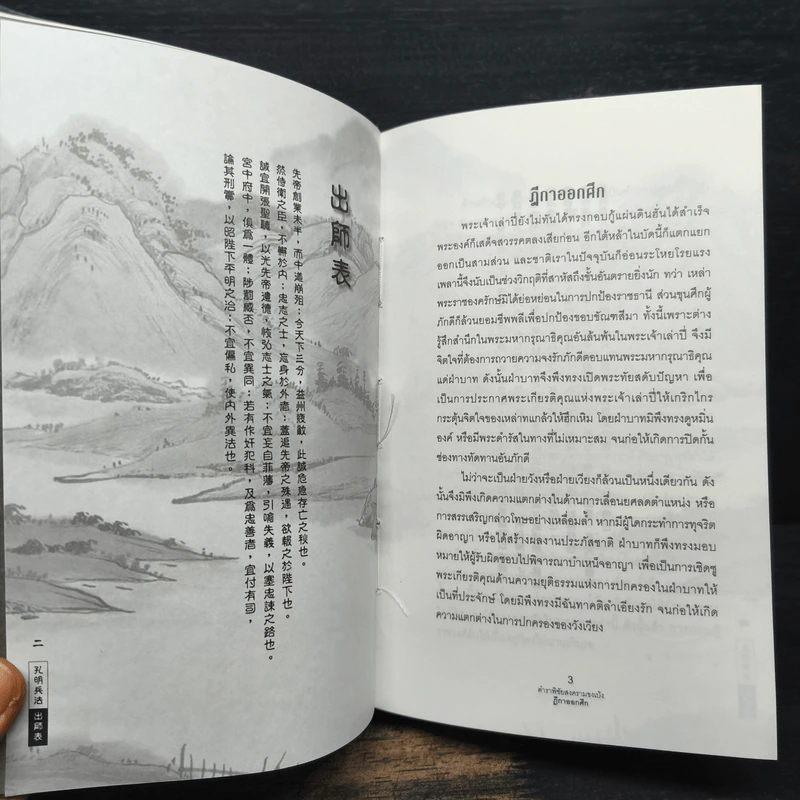 出師表
先帝創業未半，而中道崩殂；今天下三分，益州疲敝，此誠危急存亡之秋也。
然侍衛之臣，不懈於內；忠志之士，忘身於外者：蓋追先帝之殊遇，欲報之於陛下也。
誠宜開張聖聽，以光先帝遺德，恢弘志士之氣；不宜妄自菲薄，引喻失義，以塞忠諫之路也。
宮中府中，俱為一體；陟罰臧否，不宜異同：若有作奸犯科，及為忠善者，宜付有司，
論其刑賞，以昭陛下平明之治；不宜偏私，使內外異法也。
二
孔明兵法
出師表
ฎีกาออกศึก
พระเจ้าเล่าปี่ยังไม่ทันได้ทรงกอบกู้แผ่นดินฮั่นได้สำเร็จ
พระองค์ก็เสด็จสวรรคตลงเสียก่อน อีกใต้หล้าในบัดนี้ก็แตกแยก
ออกเป็นสามส่วน และชาติเราในปัจจุบันก็อ่อนระโหยโรยแรง
เพลานี้จึงนับเป็นช่วงวิกฤติที่สาหัสถึงขั้นอันตรายยิ่งนัก ทว่า เหล่า
พระราชองครักษ์มิได้ย่อหย่อนในการปกป้องราชธานี ส่วนขุนศึกผู้
ภักดีก็ล้วนยอมพลีชีพเพื่อปกป้องขอบขัณฑสีมา ทั้งนี้เพราะต่าง
รู้สึกสำนึกในพระมหากรุณาธิคุณอันล้นพ้นในพระเจ้าเล่าปี่ จึงมี
จิตใจที่ต้องการถวายความจงรักภักดีตอบแทนพระมหากรุณาธิคุณ
แด่ฝ่าบาท ดังนั้นฝ่าบาทจึงพึงทรงเปิดพระทัยสดับปัญหา เพื่อ
เป็นการประกาศพระเกียรติคุณแห่งพระเจ้าเล่าปี่ให้เกริกไกร
กระตุ้นจิตใจของเหล่าทแกล้วให้ฮึกเหิม โดยฝ่าบาทมิพึงทรงดูหมิ่น
องค์ หรือมีพระดำรัสในทางที่ไม่เหมาะสม จนก่อให้เกิดการปิดกั้น
ช่องทางทัดทานอันภักดี
ไม่ว่าจะเป็นฝ่ายวังหรือฝ่ายเวียงก็ล้วนเป็นหนึ่งเดียวกัน ดัง
นั้นจึงมิพึงเกิดความแตกต่างในด้านการเลื่อนยศลดตำแหน่ง หรือ
การสรรเสริญกล่าวโทษอย่างเหลื่อมล้ำ หากมีผู้ใดกระทำการทุจริต
ผิดอาญา หรือได้สร้างผลงานประภัสชาติ ฝ่าบาทก็พึงทรงมอบ
หมายให้ผู้รับผิดชอบไปพิจารณาบำเหน็จอาญา เพื่อเป็นการเชิดชู
พระเกียรติคุณด้านความยุติธรรมแห่งการปกครองในฝ่าบาทให้
เป็นที่ประจักษ์ โดยมิพึงทรงมีฉันทาคติลำเอียงรัก จนก่อให้เกิด
ความแตกต่างในการปกครองของวังเวียง
3
ตำราพิชัยสงครามขงเบ้ง
ฎีกาออกศึก